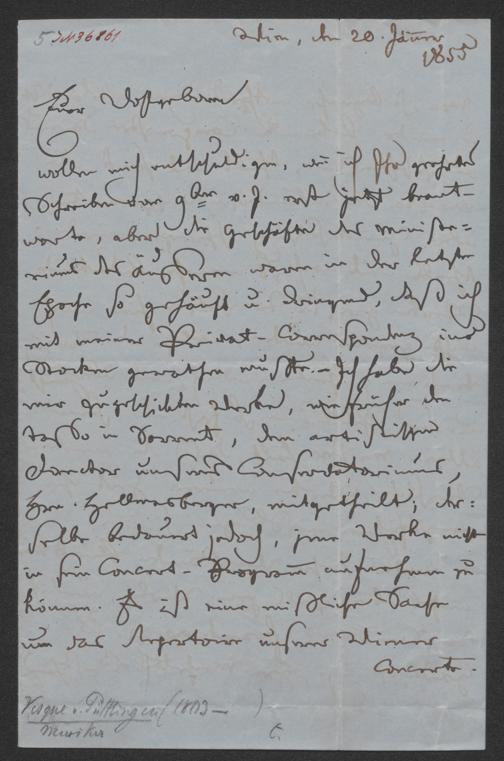 5 JN96861
Wien, den 20. Jänner
1855
Euer Wohlgeboren
wollen mich entschuldigen, wenn ich Ihr geehrtes
Schreiben vom 9ber v. J. erst jetzt beant-
worte, aber die Geschäfte des Ministe-
riums des Äußeren waren in der letzten
Epoche so gehäuft u. dringend, daß ich
mit meiner Privat-Correspondenz ins
Stocken gerathen mußte. – Ich habe die
mir zugeschickten Werke, wie früher den
Tasso in Sorrent, dem artistischen
Director unseres Conservatoriums,
Hrn. Hellmesberger, mitgetheilt; der-
selbe bedauert jedoch, jene Werke nicht
in sein Concert-Programm aufnehmen zu
können. Es ist eine mißliche Sache
um das Repertoire unserer Wiener
Concerte.
Vesque v. Püttlingen (1803 – )
Musiker